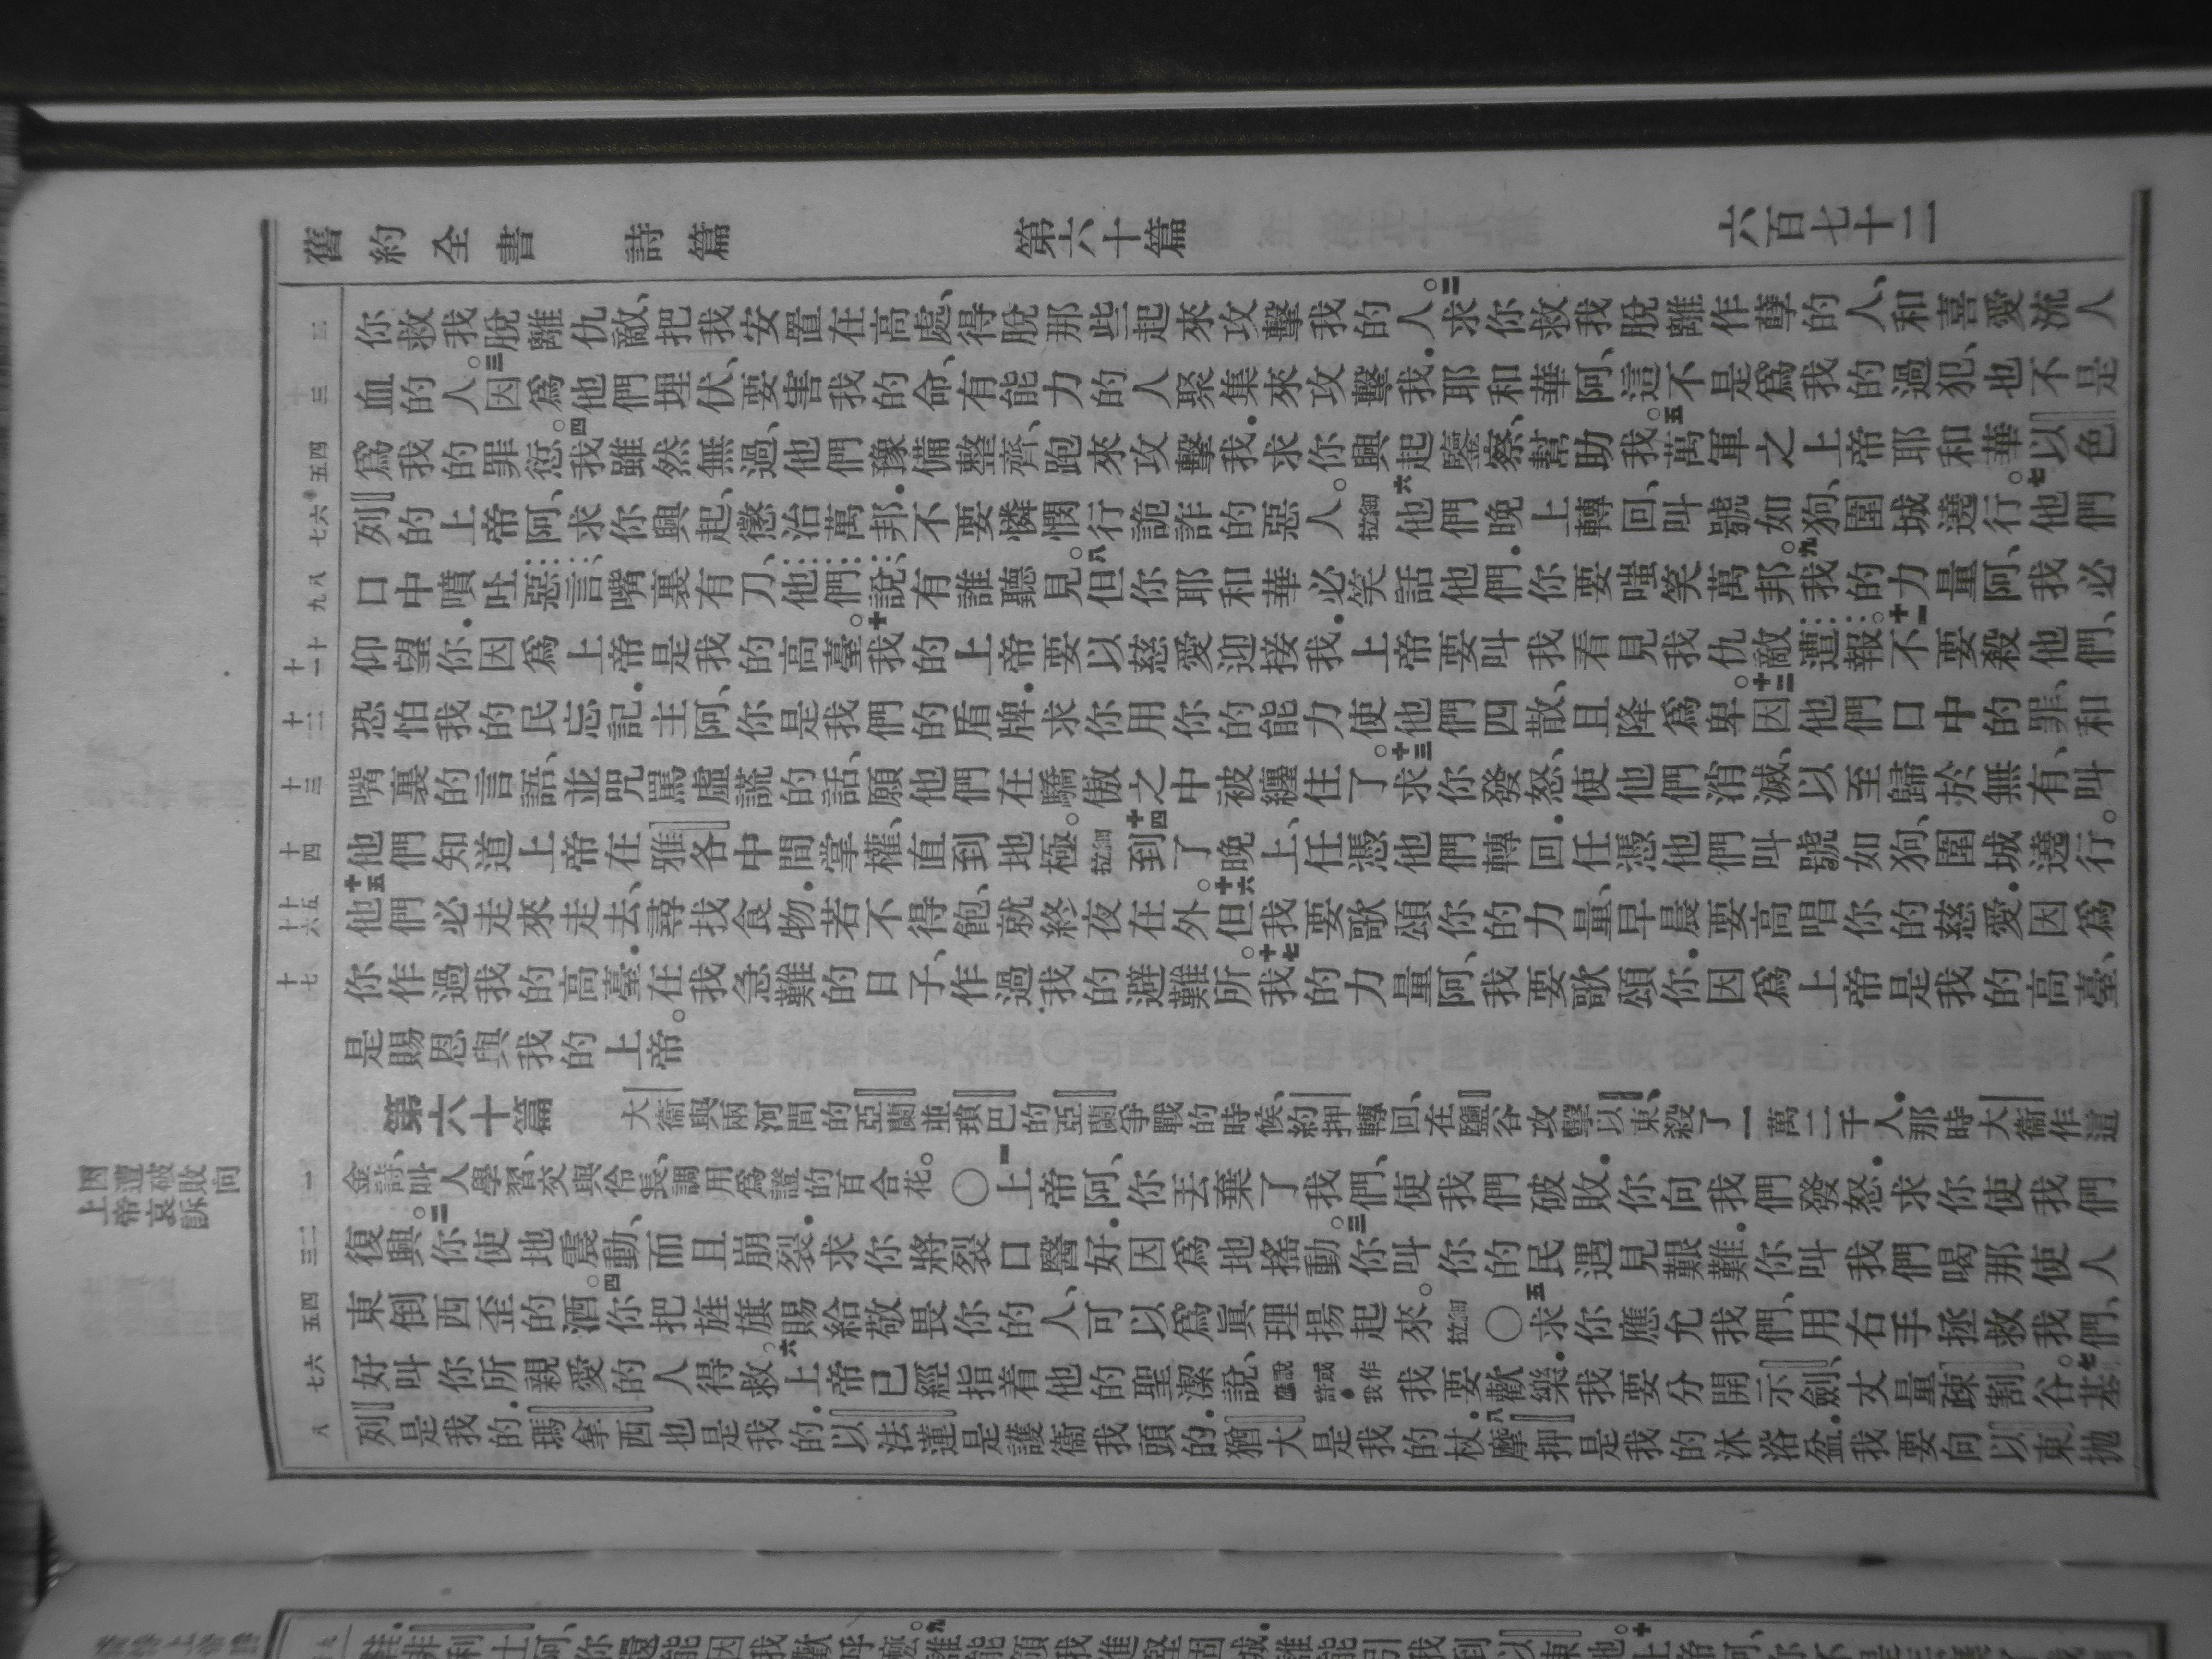 舊約全書 詩篇 第六十篇 六百七十二
二 你救我脫離仇敵、把我安置在高處、得脫那些起來攻擊我的人。二求你救我脫離作孽的人、和喜愛流人
三 血的人。三因爲他們埋伏、要害我的命、有能力的人聚集來攻擊我.耶和華阿、這不是爲我的過犯、也不是
四 五 爲我的罪愆。四我雖然無過、他們豫備整齊、跑來攻擊我.求你興起鑒察、幫助我。五萬軍之上帝耶和華以色
六 七 列的上帝阿、求你興起、懲治萬邦.不要憐憫行詭詐的惡人。細拉 六他們晚上轉回、叫號如狗、圍城遶行。七他們
八 九 口中噴吐惡言、嘴裏有刀、他們說、有誰聽見。八但你耶和華必笑話他們.你要嗤笑萬邦。九我的力量阿、我必
十 十一 仰望你.因爲上帝是我的高臺。十我的上帝要以慈愛迎接我.上帝要叫我看見我仇敵遭報。十一不要殺他們、
十二 恐怕我的民忘記.主阿、你是我們的盾牌.求你用你的能力使他們四散、且降爲卑。十二因他們口中的罪、和
十三 嘴裏的言語、並咒罵虛謊的話、願他們在驕傲之中被纏住了。十三求你發怒、使他們消滅、以至歸於無有、叫
十四 他們知道上帝在雅各中間掌權、直到地極。細拉 十四到了晚上、任憑他們轉回.任憑他們叫號如狗、圍城遶行。
十五 十六 十五他們必走來走去、尋找食物.若不得飽、就終夜在外。十六但我要歌頌你的力量、早晨要高唱你的慈愛.因爲
十七 你作過我的高臺.在我急難的日子、作過我的避難所。十七我的力量阿、我要歌頌你.因爲上帝是我的高臺、
是賜恩與我的上帝。
第六十篇 大衞與兩河間的亞蘭並瑣巴的亞蘭爭戰的時候、約押轉回、在鹽谷攻擊以東、殺了一萬二千人.那時大衞作這
一 金詩、叫人學習、交與伶長、調用爲證的百合花。〇一上帝阿、你丟棄了我們、使我們破敗.你向我們發怒.求你使我們
因遭破敗向
上帝哀訴
二 三 復興。二你使地震動、而且崩裂.求你將裂口醫好.因爲地搖動。三你叫你的民遇見艱難.你叫我們喝那使人
四 五 東倒西歪的酒。四你把旌旗賜給敬畏你的人、可以爲眞理揚起來。細拉 〇五求你應允我們、用右手拯救我們、
六 七 好叫你所親愛的人得救。六上帝已經指着他的聖潔說、說或作應許我 我要歡樂.我要分開示劍、丈量疎割谷。七基
八 列是我的.瑪拿西也是我的.以法蓮是護衞我頭的.猶大是我的杖.八摩押是我的沐浴盆.我要向以東拋